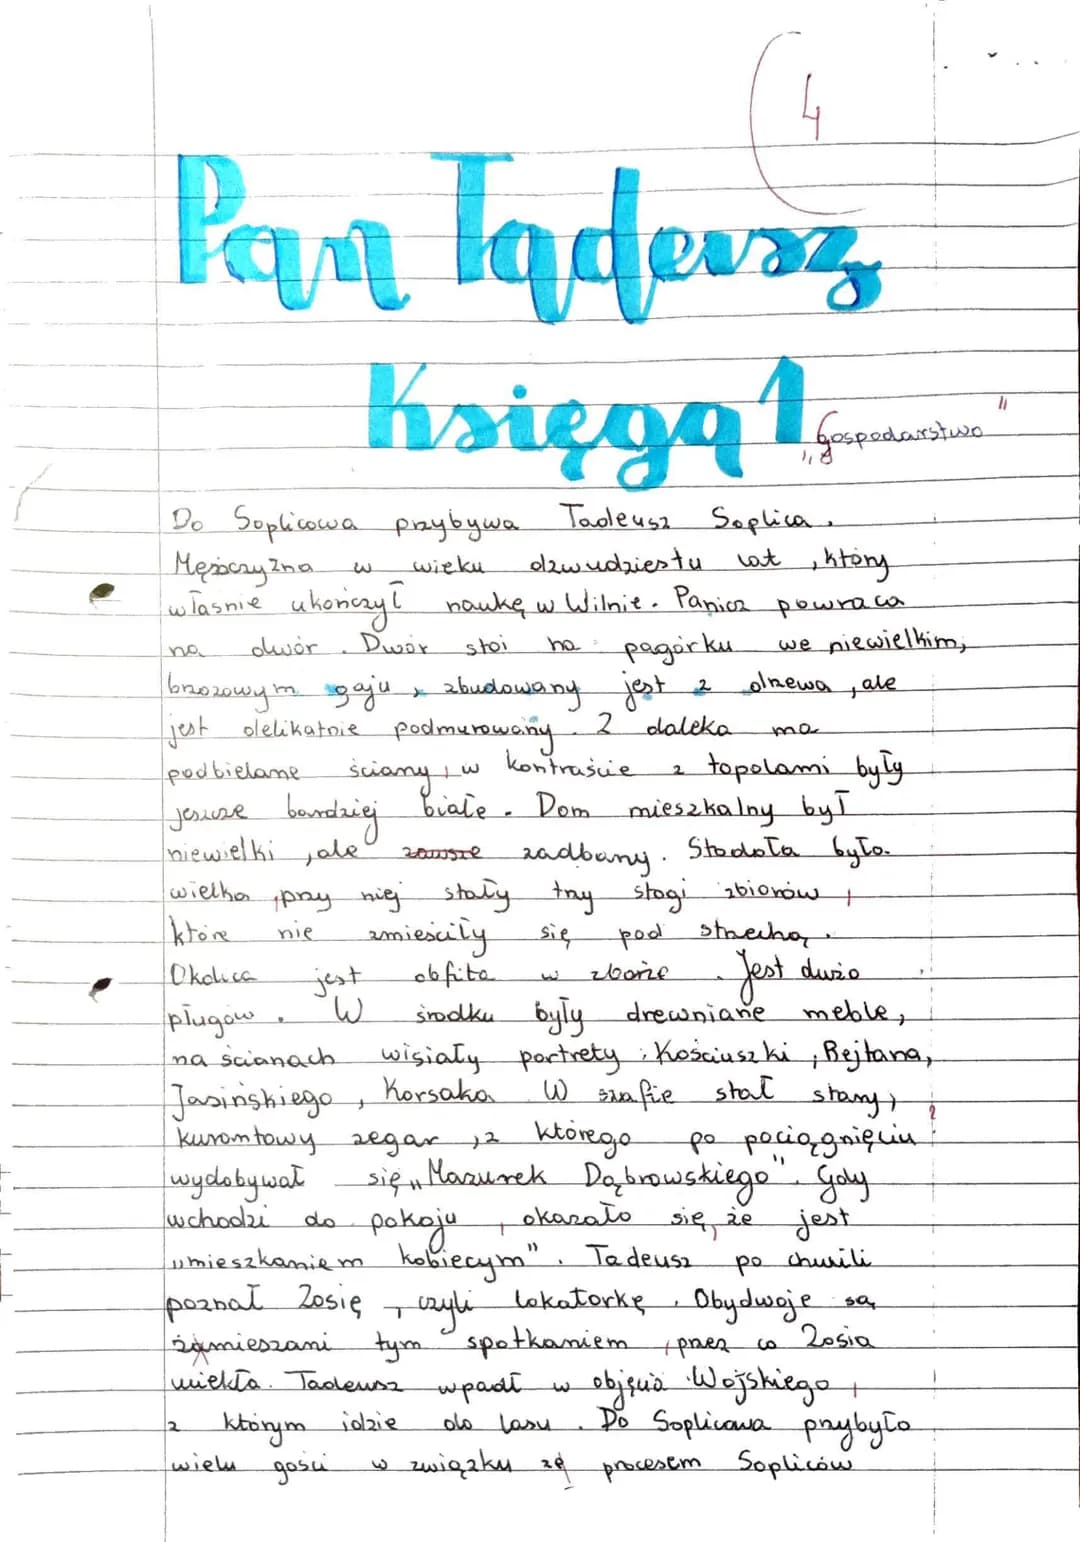 4
Pan Tadeusz
Księga 1
„Gospodarstwo"
Do Soplicowa przybywa Tadeusz Soplica.
Mężczyzna w wieku dzwudziestu lat, który
własnie ukończył naukę w Wilnie. Panicz powraca
na dwór. Dwór stoi na pagórku we niewielkim,
brzozowym gaju, zbudowany jest z drzewa, ale
jest delikatnie podmurowany. Z daleka ma
podbielane ściany, w kontraście z topolami były
jeszcze bardziej białe. Dom mieszkalny był
niewielki, ale zawsze zadbany. Stodoła była
wielka, przy niej stały trzy stogi zbiorów,
które nie zmieściły się pod strzechą.
Okolica jest obfita w zboże. Jest dużo
pługów. W środku były drewniane meble,
na ścianach wisiały portrety: Kościuszki, Rejtana,
Jasińskiego, Korsaka. W szafie stał stary,
kurantowy zegar, z którego po pociągnięciu
wydobywał się „Mazurek Dąbrowskiego". Gdy
wchodzi do pokoju, okazało się, że jest
„mieszkaniem kobiecym". Tadeusz po chwili
poznał Zosię, czyli lokatorkę. Obydwoje są
zamieszani tym spotkaniem, przez co Zosia
uciekła. Tadeusz wpadł w objęcia Wojskiego,
z którym idzie do lasu. Do Soplicowa przybyło
wielu gości w związku ze procesem Sopliców